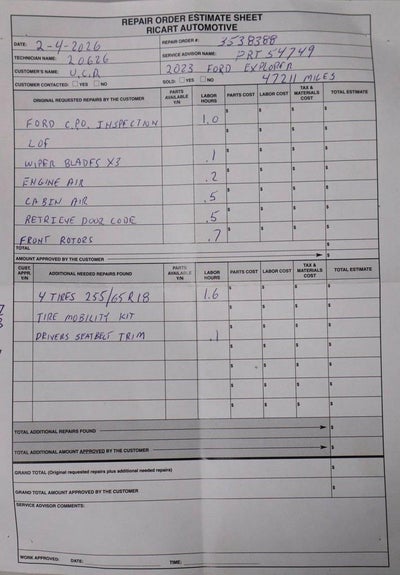 REPAIR ORDER ESTIMATE SHEET
RICART AUTOMOTIVE
DATE: 2-4-2026 REPAIR ORDER #: 3538388
TECHNICIAN NAME: 20626 SERVICE ADVISOR NAME: PRT 54749
CUSTOMER'S NAME: U.C.R 2023 FORD EXPLORER
CUSTOMER CONTACTED: YES NO SOLD: YES NO 47211 MILES
ORIGINAL REQUESTED REPAIRS BY THE CUSTOMER PARTS AVAILABLE Y/N LABOR HOURS PARTS COST LABOR COST TAX & MATERIALS COST TOTAL ESTIMATE
FORD C.P.O. INSPECTION 1.0 $ $ $ $
LOF $ $ $ $
WIPER BLADES X3 .1 $ $ $ $
ENGINE AIR .2 $ $ $ $
CABIN AIR .5 $ $ $ $
RETRIEVE DOOR CODE .5 $ $ $ $
FRONT ROTORS .7 $ $ $ $
TOTAL
AMOUNT APPROVED BY THE CUSTOMER $
CUST. APPR. Y/N ADDITIONAL NEEDED REPAIRS FOUND PARTS AVAILABLE Y/N LABOR HOURS PARTS COST LABOR COST TAX & MATERIALS COST TOTAL ESTIMATE
4 TIRES 255/65R18 1.6 $ $ $ $
TIRE MOBILITY KIT $ $ $ $
DRIVERS SEATBELT TRIM .1 $ $ $ $
$ $ $ $
$ $ $ $
$ $ $ $
TOTAL ADDITIONAL REPAIRS FOUND $
TOTAL ADDITIONAL AMOUNT APPROVED BY THE CUSTOMER $
GRAND TOTAL (Original requested repairs plus additional needed repairs) $
GRAND TOTAL AMOUNT APPROVED BY THE CUSTOMER $
SERVICE ADVISOR COMMENTS:
WORK APPROVED: DATE: TIME: